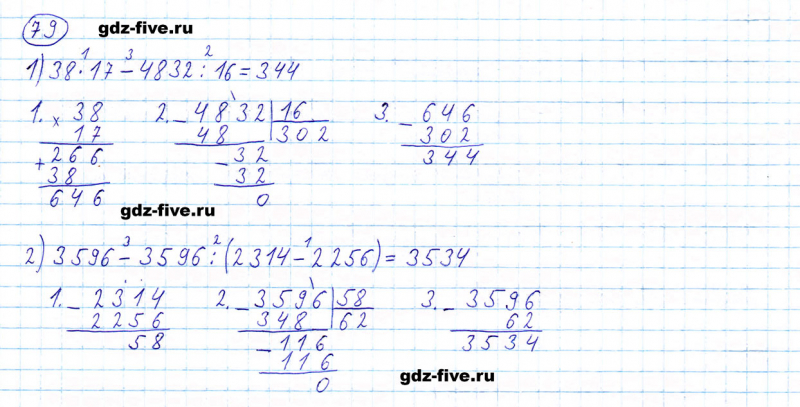 79 gdz-five.ru
1) 38 · 17 - 4832 : 16 = 344
1 3 2
1. × 38 2. - 4832 | 16 3. - 646
17 48 302 302
+ 266 - 32 344
38 32
646 0
gdz-five.ru
2) 3596 - 3596 : (2314 - 2256) = 3534
3 2 1
1. - 2314 2. - 3596 | 58 3. - 3596
2256 348 62 62
58 - 116 3534
116
0
gdz-five.ru